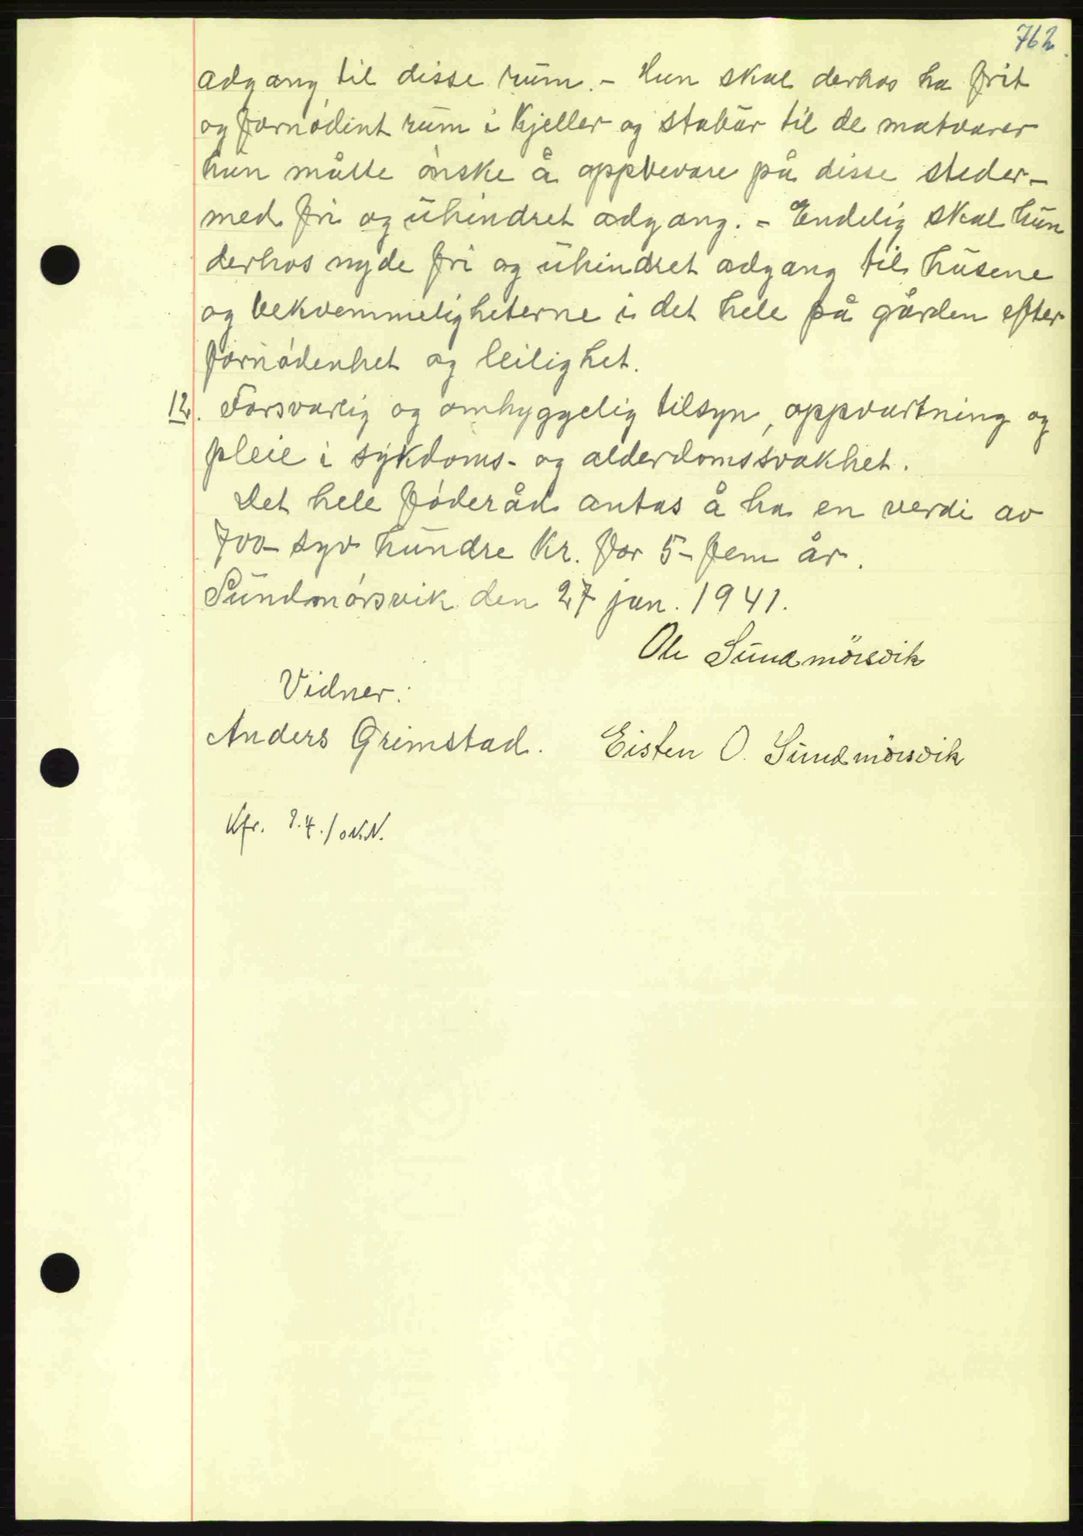 762.
adgang til disse rum. - Hun skal derhos ha frit
og fornødent rum i kjeller og stabur til de matvarer
hun måtte ønske å oppbevare på disse steder -
med fri og uhindret adgang. - Endelig skal hun
derhos nyde fri og uhindret adgang til husene
og bekvemmeligheterne i det hele på gården efter
fornødenhet og leilighet.
12. Forsvarlig og omhyggelig tilsyn, oppvartning og
pleie i sykdoms- og alderdomssvakhet.
Det hele føderåd antas å ha en verdi av
700 - syv hundre kr. for 5 - fem år.
Sundmørsvik den 27 jan. 1941.
Ole Sundmörsvik
Vidner:
Anders Grimstad. Eisten O. Sundmörsvik
Kfr.